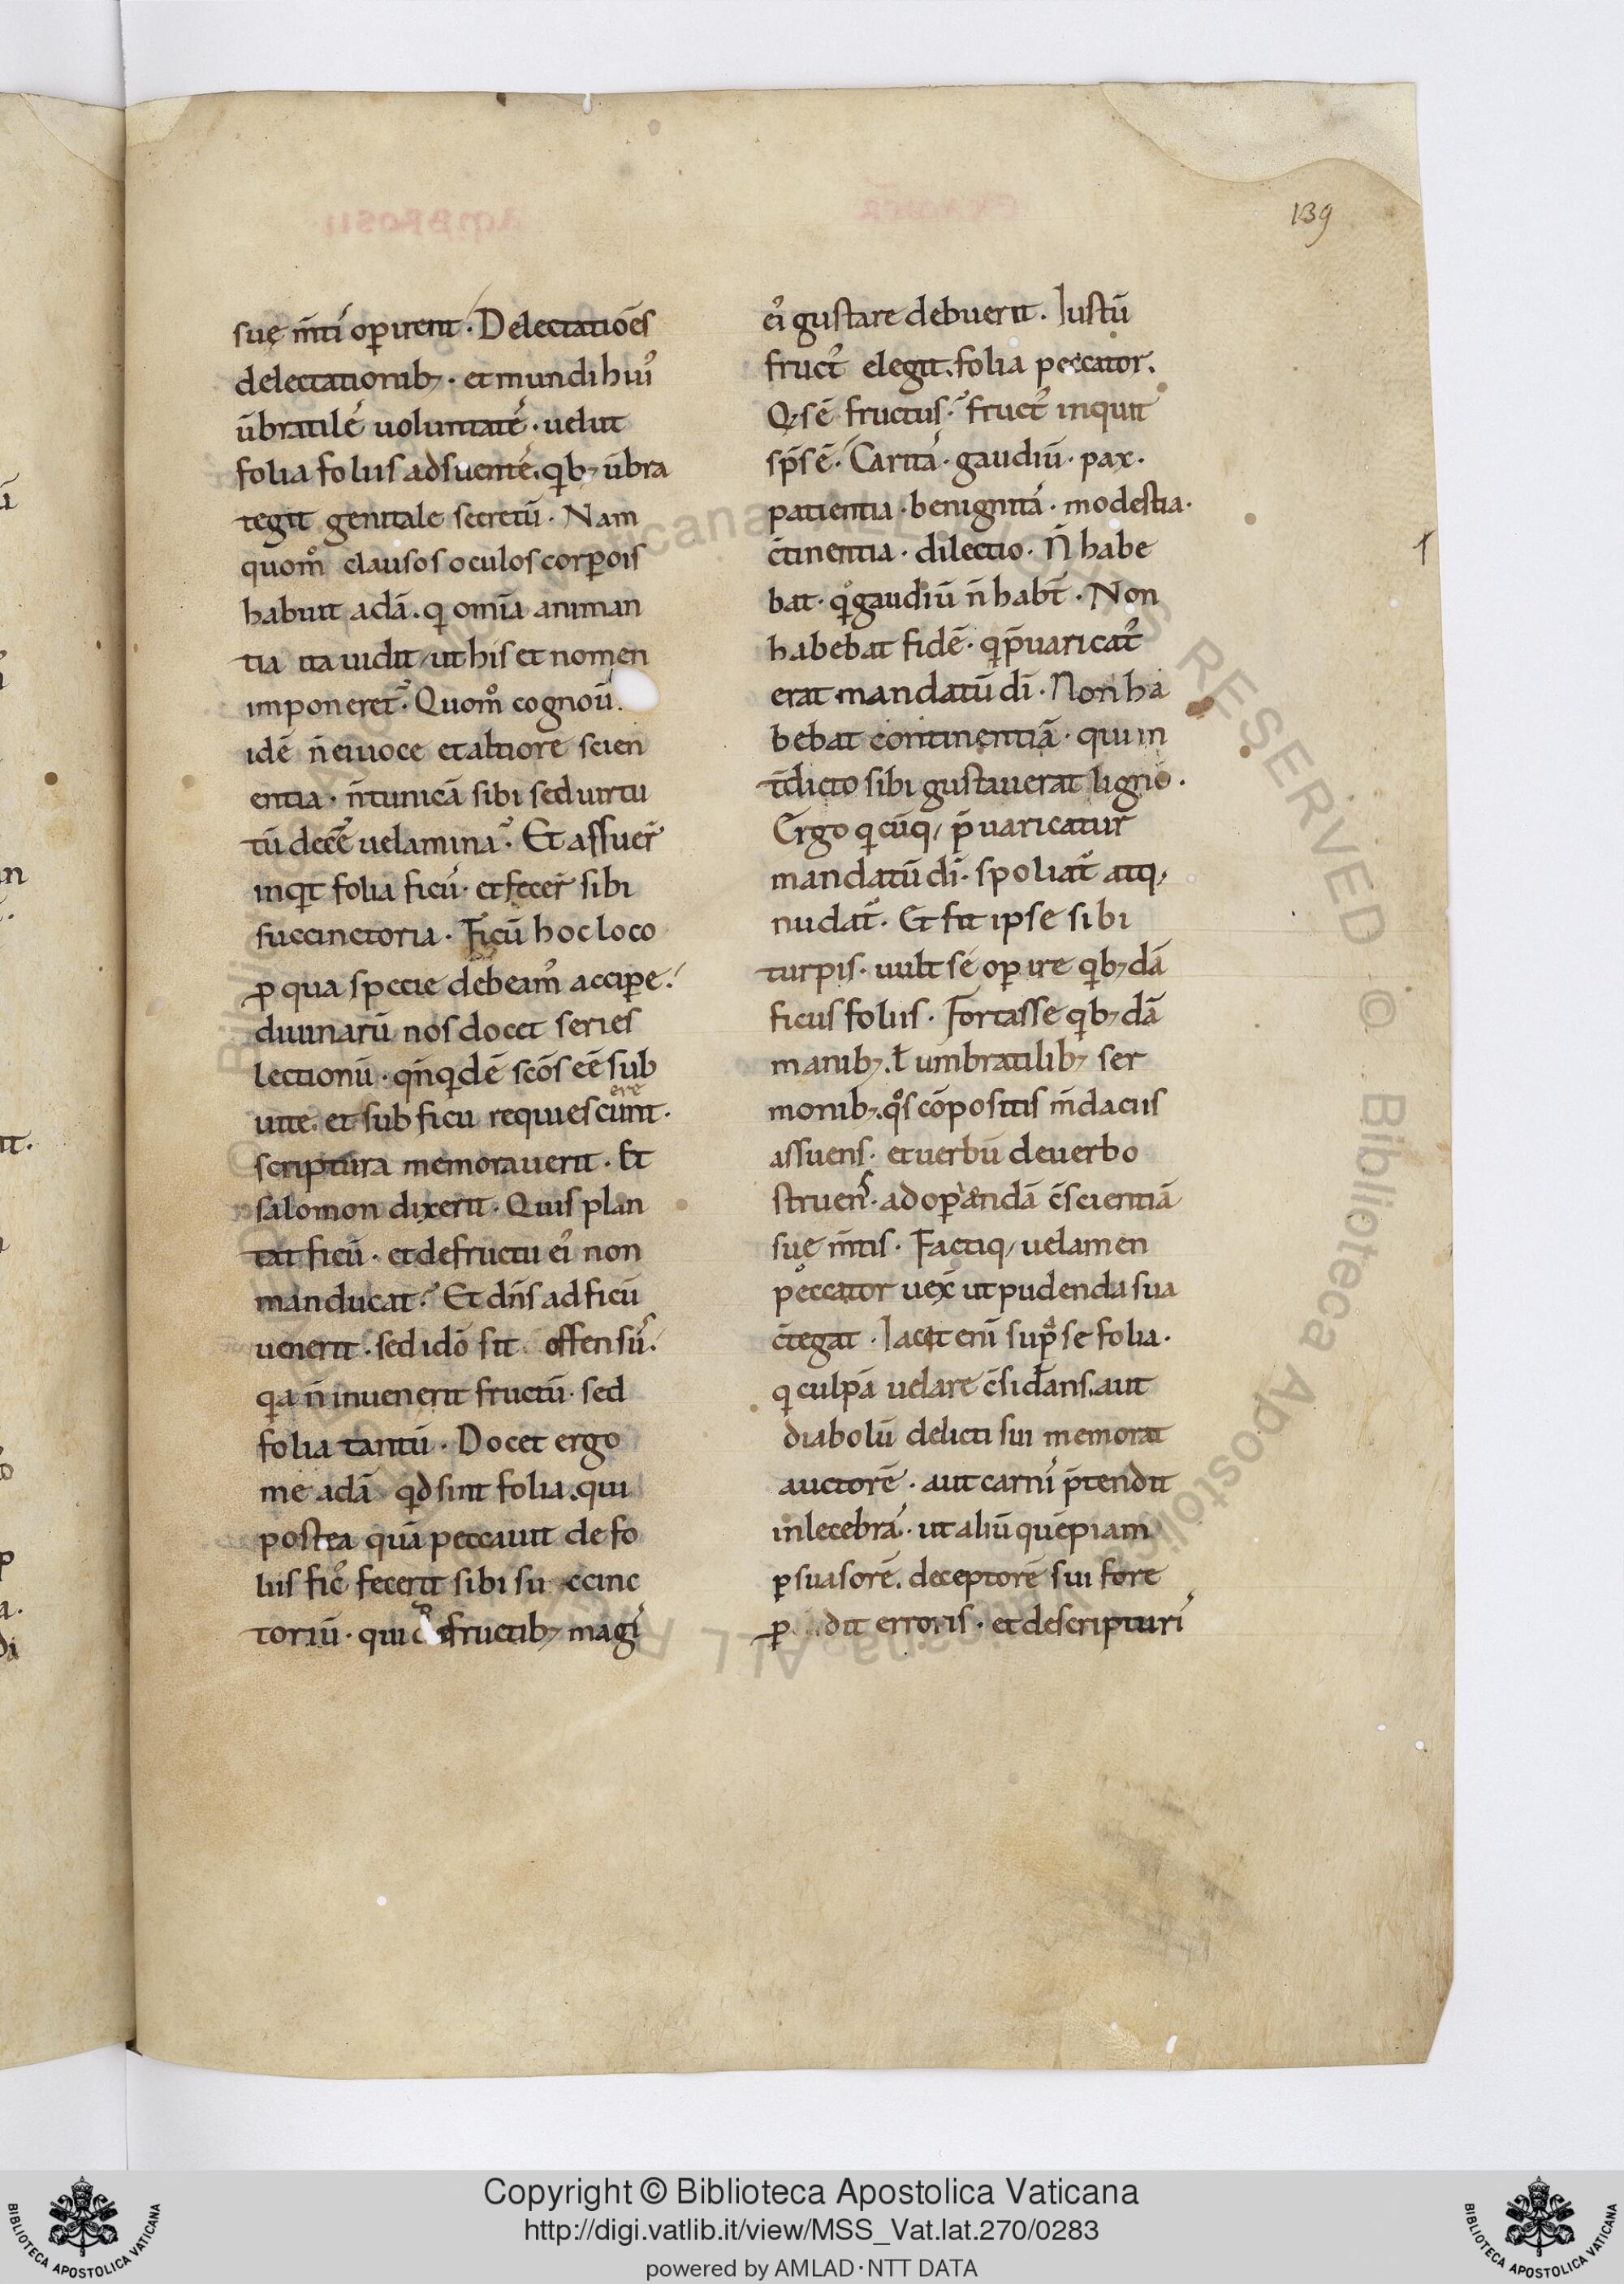 139
suę m̅ti᷒ oꝑirent. Delectatio̅es
delectationib; · et mundi hui᷒
u̅bratile̅ uoluntate̅ · uelut
folia foliis adsuente᷒. qib; u̅bra
tegit genitale secretu̅ · Nam
quom° clausos oculos corꝑois
habuit ada̅. qi om̅ia animan
tia ita uidit, ut his et nomen
imponeret? Quom° cognou̅.
ide̅ n̅ ei uoce et altiore scien
entia · n̅ tunica̅ sibi sed uirtu
tu̅ dee̅e̅ uelamina? Et assuer̅
inqit folia ficu᷒ · et fecer̅ sibi
succinctoria. Ficu̅ hoc loco
ꝓ qua specie debeam᷒ acciꝑe.
diuinaru̅ nos docet series
lectionu̅ · qn̅qide̅ sc̅os ee̅ sub
ere
uite. et sub ficu requiescunt.
scriptura memorauerit. Et
salomon dixerit. Quis plan
tat ficu̅ · et de fructu ei᷒ non
manducat? Et dn̅s ad ficu̅
uenerit. sed ido̅ sit offensu᷒.
qia n̅ inuenerit fructu̅ · sed
folia tantu̅. Docet ergo
me ada̅ qid sint folia. qui
postea qua̅ peccauit de fo
liis fic᷒ fecerit sibi su ccinc
toriu̅ · qui de fructib; magi᷒
ei᷒ gustare debuerit. Iustu̅
fruct᷒ elegit. folia peccator.
Qis e̅ fructus? fruct᷒ inquit
sp̅s e̅. Carita᷒ · gaudiu̅ · pax.
patientia · benignita᷒ · modestia.
c̅tinentia · dilectio. N̅ habe
bat · q° gaudiu̅ n̅ habt̅. Non
habebat fide̅ · qi p̅uaricat᷒
erat mandatu̅ di̅. Non ha
bebat continentia̅ · qui in
t̅dicto sibi gustauerat ligno.
Ergo qicu̅q; p̅uaricatur̅
mandatu̅ di̅ · spoliat᷒ atq;
nudat᷒. Et fit ipse sibi
turpis · uult se oꝑire qib;da̅
ficus foliis. Fortasse qib;da̅
manib;. ł umbratilib; ser
monib;. q°s co̅positis m̅daciis
assuens · et uerbu̅ de uerbo
struens · ad oꝑanda̅ c̅scientia̅
suę m̅tis. Factiq; uelamen
peccator uex̅ ut pudenda sua
c̅tegat. Iacit eni̅ supͣ se folia.
qi culpa̅ uelare c̅sid̅ans. aut
diabolu̅ delicti sui memorat
auctore̅ · aut carni᷒ p̅tendit
inlecebra᷒ · ut aliu̅ que̅piam
ꝑsuasore̅. deceptore̅ sui fore
ꝓ dit erroris · et de scripturi᷒
Copyright © Biblioteca Apostolica Vaticana
http://digi.vatlib.it/view/MSS_Vat.lat.270/0283
powered by AMLAD·NTT DATA